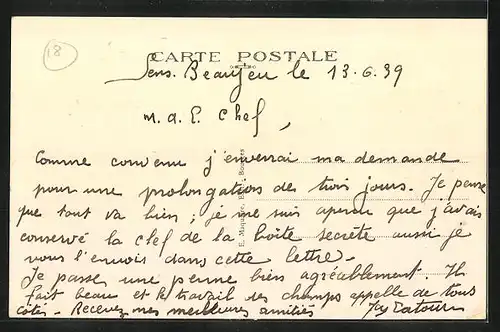 18
CARTE POSTALE
Sens. Beaujeu le 13.6.39
M. d. E. Chef,
Comme convenu j'enverrai ma demande
pour une prolongation des trois jours. Je pense
que tout va bien ; je me suis aperçu que j'avais
conservé la clef de la boîte secrète aussi je
vous l'envois dans cette lettre.
Je passe une perme bien agréablement. Il
fait beau et le travail des champs appelle de tous
côtés. Recevez mes meilleures amitiés